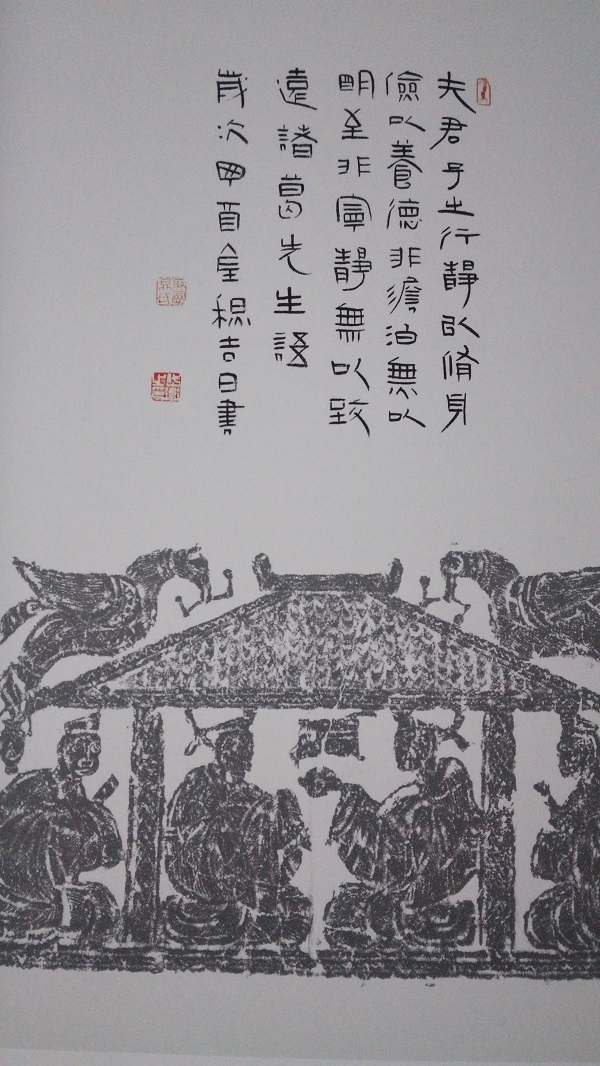 夫君子之行靜以脩身
儉以養德非澹泊無以
明至非寧靜無以致
遠諸葛先生語
歲次甲金吉日書